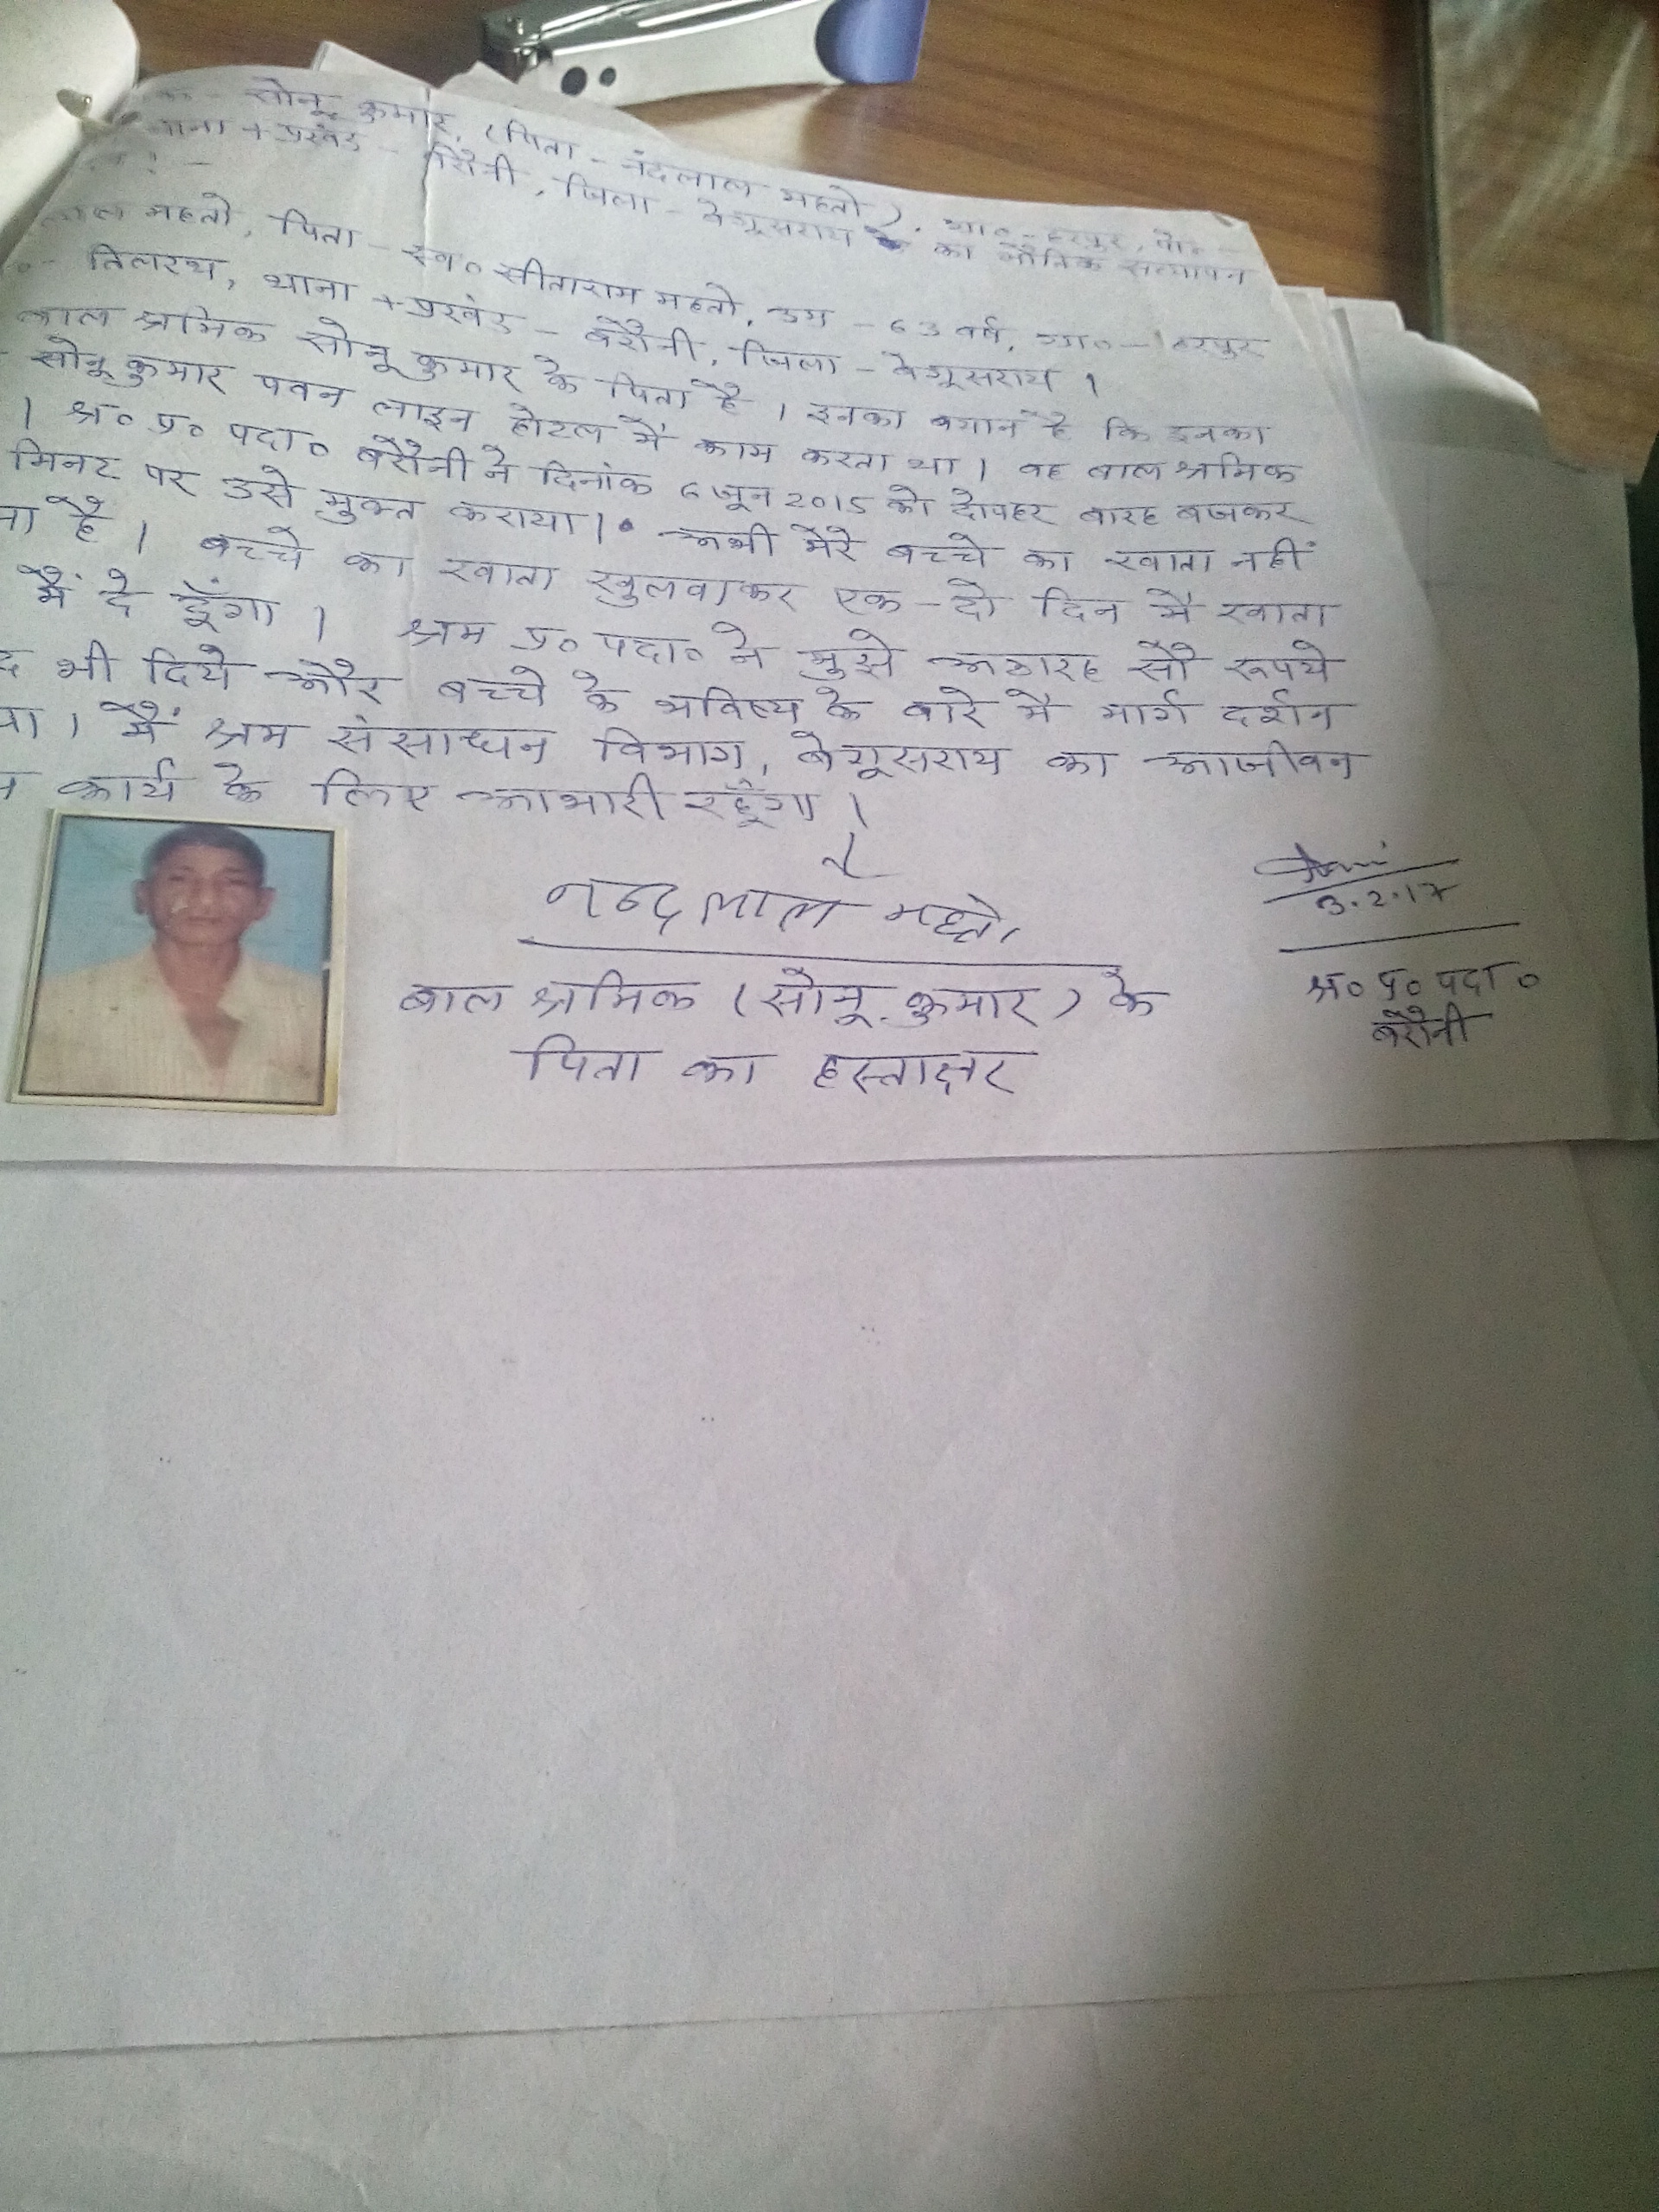 सोनू कुमार, (पिता - नंदलाल महतो), ग्रा० - हरपुर, पो० -
थाना + प्रखंड - बरौनी, जिला - बेगूसराय का भौतिक सत्यापन
लाल महतो, पिता - स्व० सीताराम महतो, उम्र - 63 वर्ष, ग्रा० - हरपुर
तिलरथ, थाना + प्रखंड - बरौनी, जिला - बेगूसराय ।
बाल श्रमिक सोनू कुमार के पिता है । इनका बयान है कि इनका
सोनू कुमार पवन लाइन होटल में काम करता था । वह बाल श्रमिक
। श्र० प्र० पदा० बरौनी ने दिनांक 6 जून 2015 को दोपहर बारह बजकर
मिनट पर उसे मुक्त कराया । अभी मेरे बच्चे का खाता नहीं
है । बच्चे का खाता खुलवाकर एक - दो दिन में खाता
मैं दे दूँगा । श्रम प्र० पदा० ने मुझे अठारह सौ रूपये
भी दिये और बच्चे के भविष्य के बारे में मार्ग दर्शन
। मैं श्रम संसाधन विभाग, बेगूसराय का आजीवन
कार्य के लिए आभारी रहूँगा ।
नन्दलाल महतो
3.2.17
बाल श्रमिक (सोनू कुमार) के
पिता का हस्ताक्षर
श्र० प्र० पदा०
बरौनी